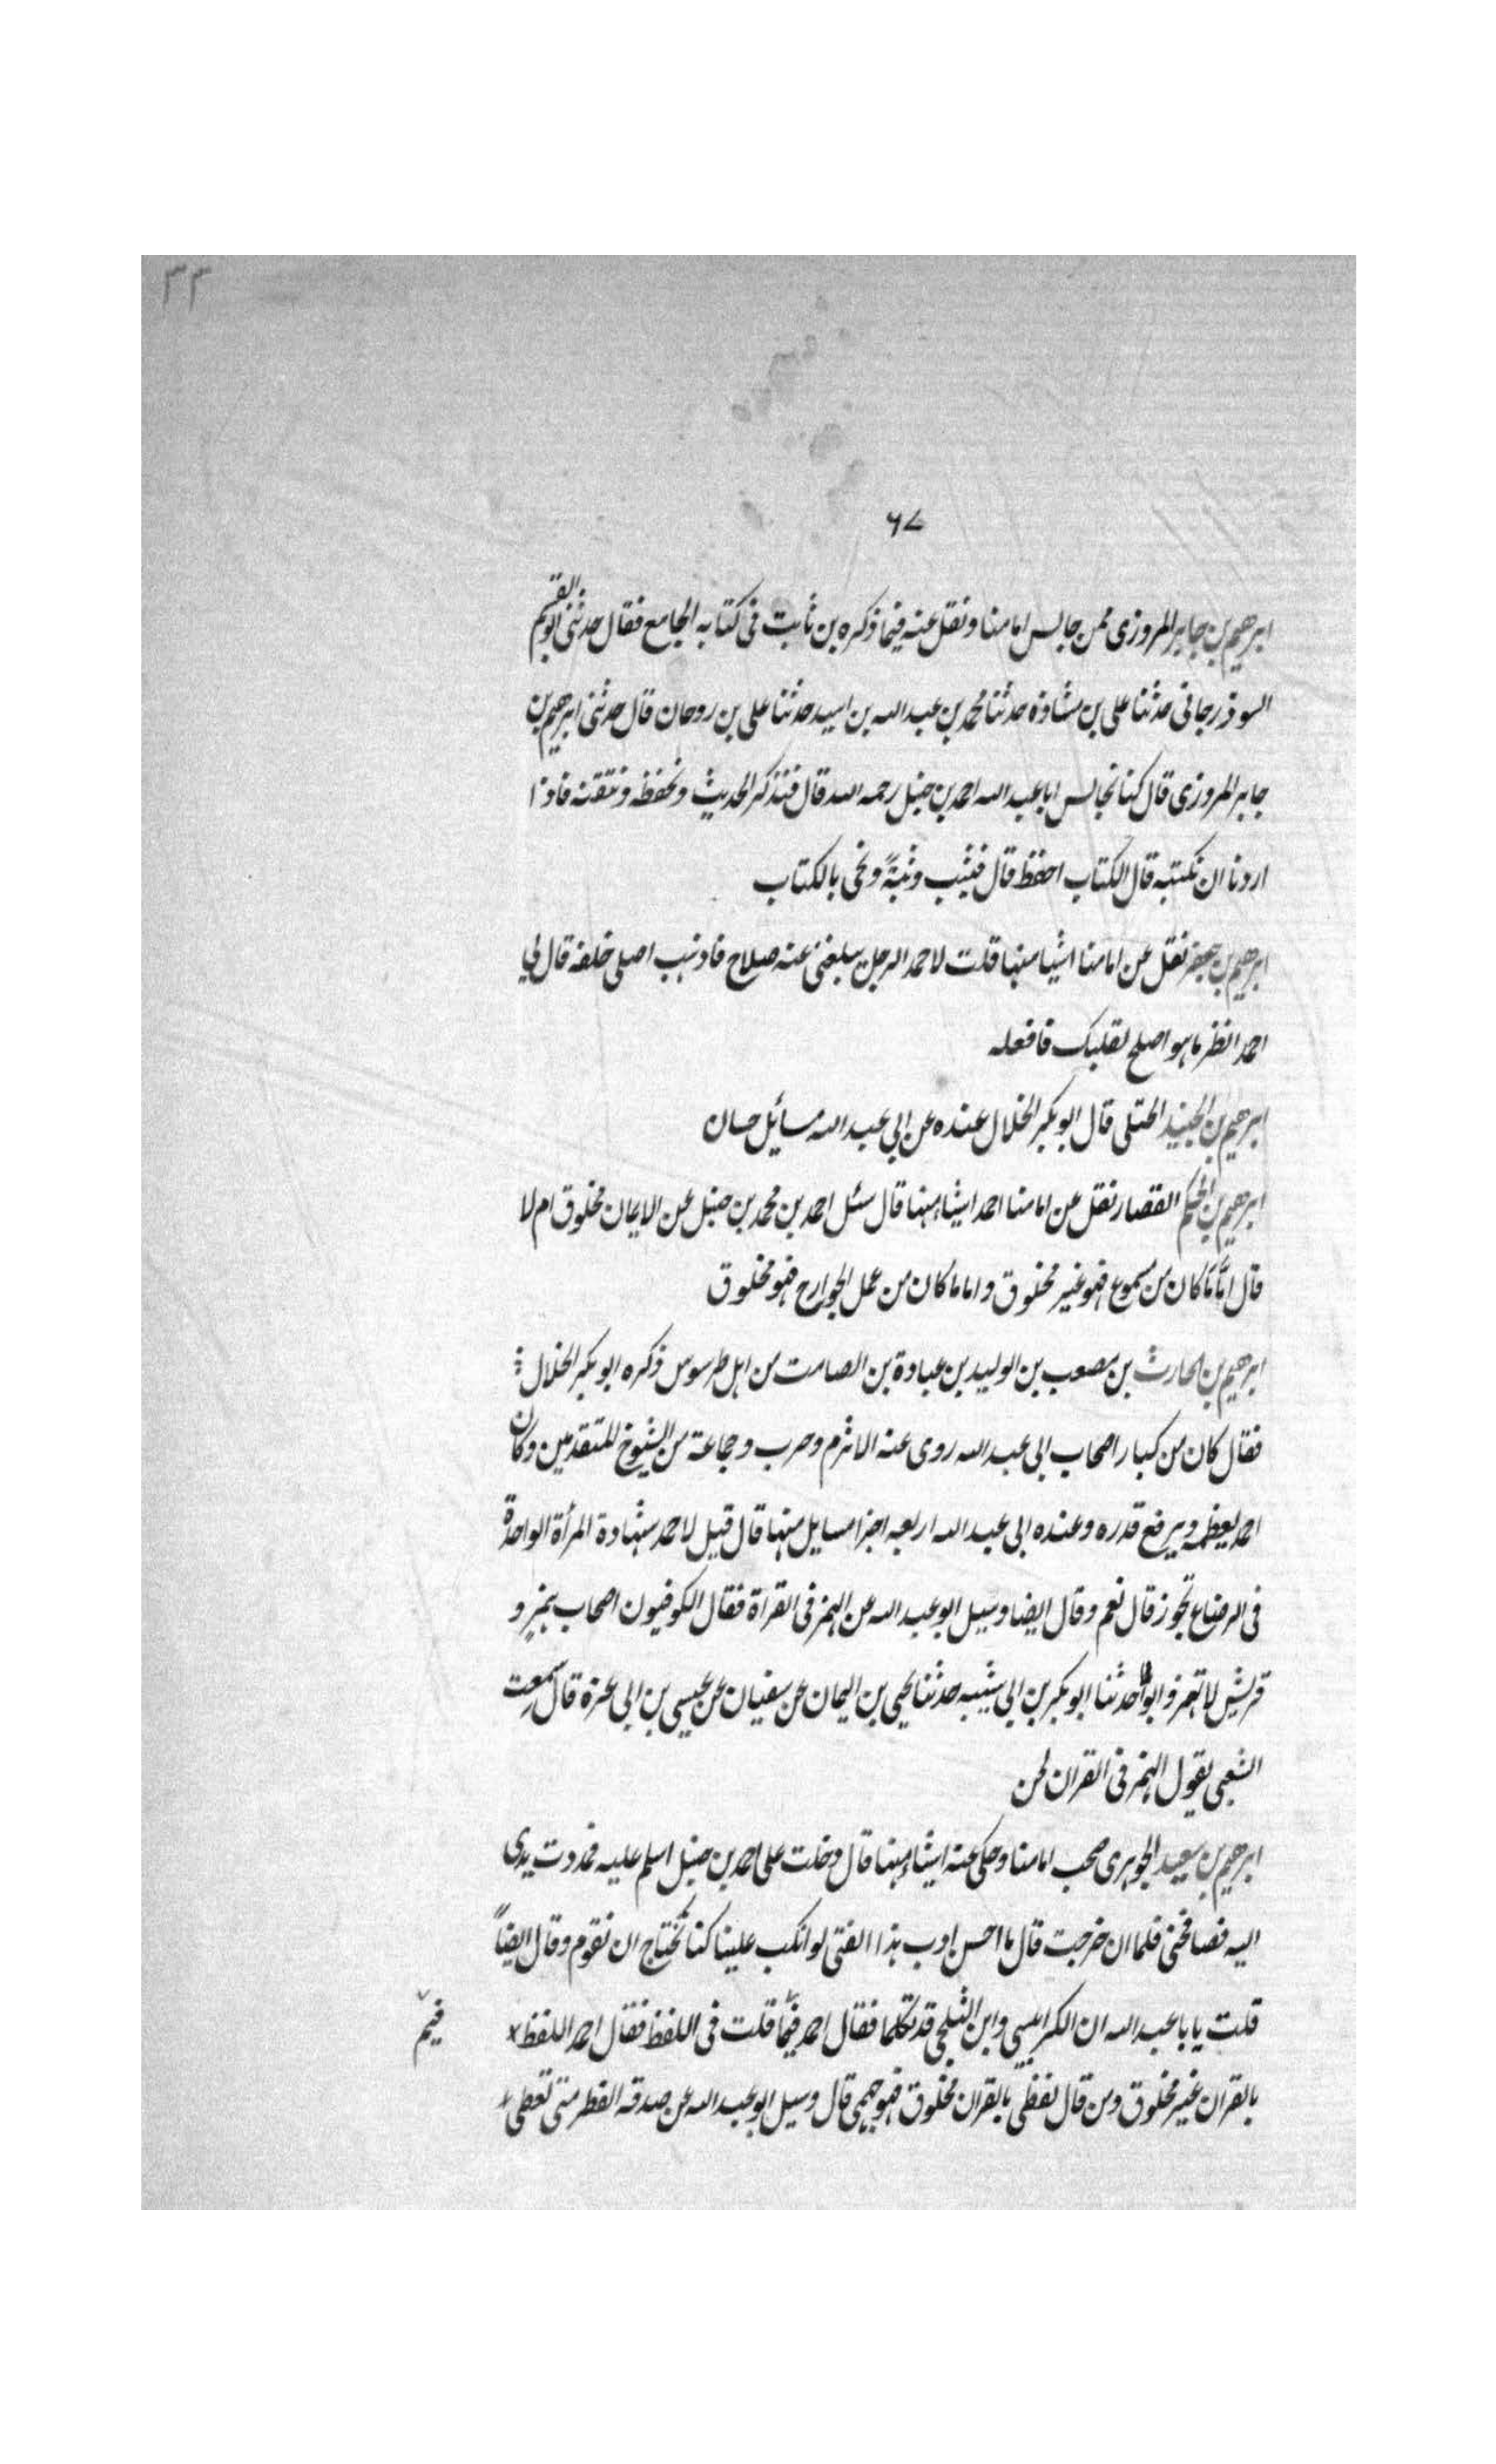 ٣٣
٦٧
ابرهيم بن جابر المروزى ممن جالس امامنا ونقل عنه فيما ذكره بن ثابت فى كتابه الجامع فقال حدثنى ابو القسم
السوذرجانى حدثنا على بن مشاذه حدثنا محمد بن عبد الله بن اسيد حدثنا على بن روحان قال حدثنى ابرهيم بن
جابر المروزى قال كنا نجالس ابا عبد الله احمد بن حنبل رحمه الله قال فنذكر الحديث ونحفظه ونتقنه فاذا
اردنا ان نكتبه قال الكتاب احفظ قال فيثب وثبةً ونجى بالكتاب
ابرهيم بن جعفر نقل عن امامنا اشيا منها قلت لاحمد الرجل يبلغنى عنه صلاح فاذهب اصلى خلفه قال لي
احمد انظر ما هو اصلح لقلبك فافعله
ابرهيم بن الجنيد الختلى قال ابو بكر الخلال عنده عن ابي عبد الله مسايل حسان
ابرهيم بن الحكم القصار نقل عن امامنا احمد اشيا منها قال سئل احمد بن محمد بن حنبل عن الايمان مخلوق ام لا
قال امَّا مَا كان من مسموع فهو غير مخلوق واما ما كان من عمل الجوارح فهو مخلوق
ابرهيم بن الحارث بن مصعب بن الوليد بن عبادة بن الصامت من اهل طرسوس ذكره ابو بكر الخلال
فقال كان من كبار اصحاب ابي عبد الله روى عنه الاثرم وحرب وجماعة من الشيوخ المتقدمين وكان
احمد يعظمه ويرفع قدره وعنده ابي عبد الله اربعه اجزا مسايل منها قال قيل لاحمد شهادة المرأة الواحدة
فى الرضاع تجوز قال نعم وقال ايضا وسيل ابو عبد الله عن الهمز فى القراة فقال الكوفيون اصحاب همز و
قريش لا تهمز حدثنا ابو بكر بن ابي شيبه حدثنا يحيى بن اليمان عن سفيان عن عيسى بن ابى عزة قال سمعت
الشعبي يقول الهمز فى القران لحن
ابرهيم بن سعيد الجوهرى صحب امامنا وحكى عنه اشيا منها قال دخلت على احمد بن حنبل اسلم عليه فمددت يدى
اليه فصافحنى فلما ان خرجت قال ما احسن ادب هذا الفتى لو انكب علينا كنا نحتاج ان نقوم وقال ايضاً
قلت يابا عبد الله ان الكرابيسى وابن الثلجى قد تكلما فقال احمد فيمَا قلت فى اللفظ فقال احمد اللفظ
فيم
بالقران غير مخلوق ومن قال لفظى بالقران مخلوق فهو جهمى قال وسيل ابو عبد الله عن صدقه الفطر متى تعطى